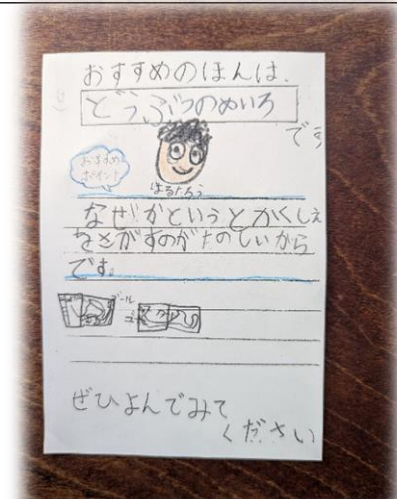 おすすめのほんは、
どうぶつのめいろ
です
おすすめ
ポイント
はるたろう
なぜかというとかくしえ
をさがすのがたのしいから
です。
ゴール
ぜひよんでみて
ください